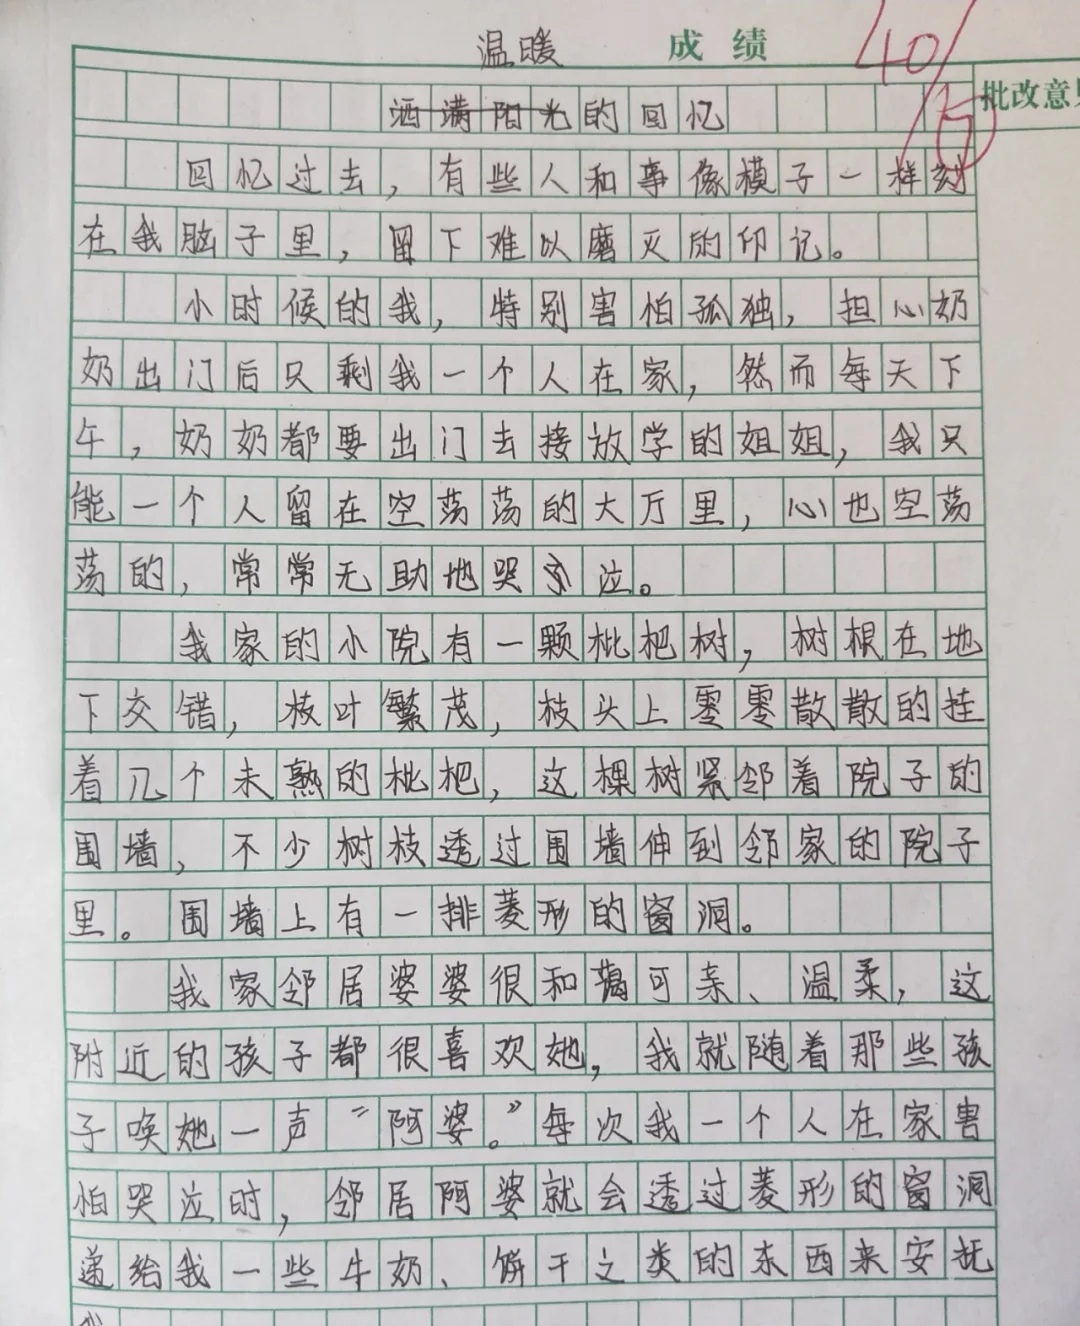 温暖 成绩 40/
批改意见
洒满阳光的回忆
回忆过去,有些人和事像模子一样刻
在我脑子里,留下难以磨灭的印记。
小时候的我,特别害怕孤独,担心奶
奶出门后只剩我一个人在家,然而每天下
午,奶奶都要出门去接放学的姐姐,我只
能一个人留在空荡荡的大厅里,心也空荡
荡的,常常无助地哭泣。
我家的小院有一颗枇杷树,树根在地
下交错,枝叶繁茂,枝头上零零散散的挂
着几个未熟的枇杷,这棵树紧邻着院子的
围墙,不少树枝透过围墙伸到邻家的院子
里。围墙上有一排菱形的窗洞。
我家邻居婆婆很和蔼可亲、温柔,这
附近的孩子都很喜欢她,我就随着那些孩
子唤她一声“阿婆。”每次我一个人在家害
怕哭泣时,邻居阿婆就会透过菱形的窗洞
递给我一些牛奶、饼干之类的东西来安抚